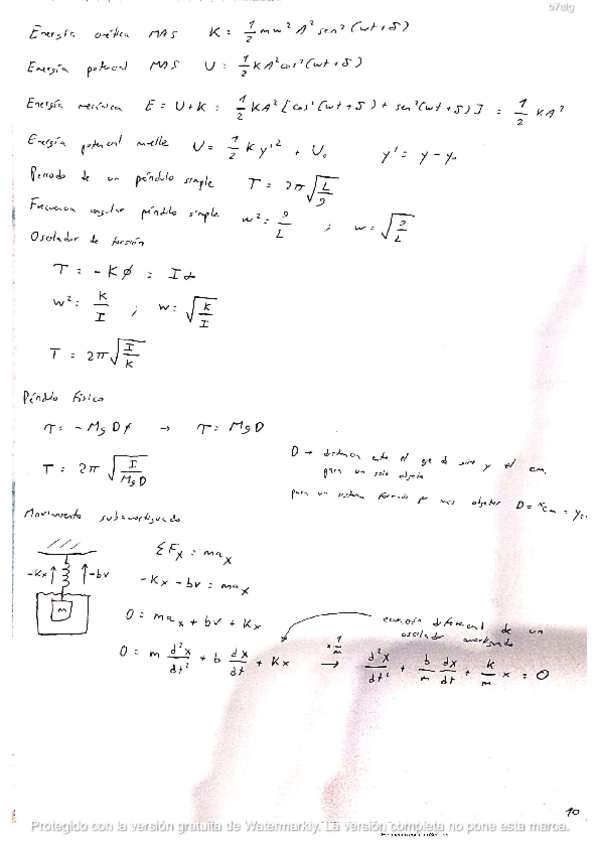 b7alg
Energía cinética MAS K = 1/2 m w² A² sen² (wt + δ)
Energía potencial MAS U = 1/2 K A² cos² (wt + δ)
Energía mecánica E = U + K = 1/2 K A² [cos² (wt + δ) + sen² (wt + δ)] = 1/2 K A²
Energía potencial muelle U = 1/2 K y'² + U₀ y' = y - y₀
Periodo de un péndulo simple T = 2π √(L/g)
Frecuencia angular péndulo simple w² = g/L ; w = √(g/L)
Oscilador de torsión
τ = -K φ = I α
w² = K/I ; w = √(K/I)
T = 2π √(I/K)
Péndulo físico
τ = -MgDφ → τ = MgD
T = 2π √(I/MgD)
D → distancia entre el eje de giro y el cm.
para un solo objeto
para un sistema formado por más objetos D = x_cm =
Movimiento subamortiguado
-Kx -bv m
ΣFx = ma_x
-Kx - bv = ma_x
0 = ma_x + bv + Kx
ecuación diferencial de un
oscilador amortiguado
0 = m d²x/dt² + b dx/dt + Kx x 1/m → d²x/dt² + b/m dx/dt + K/m x = 0
10
Protegido con la versión gratuita de Watermarkly. La versión completa no pone esta marca.